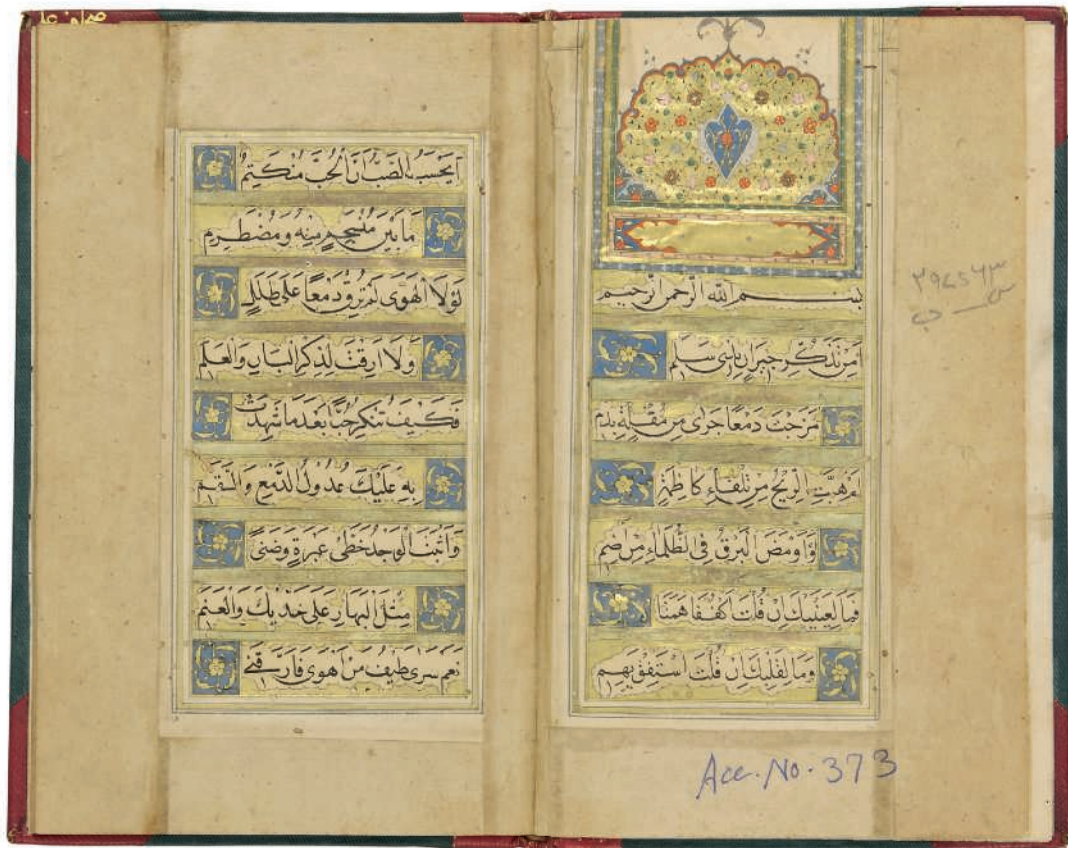 بسم الله الرحمن الرحيم
اَمِنْ تَذَكُّرِ جِيرَانٍ بِذِي سَلَمِ
مَزَجْتَ دَمْعًا جَرٰى مِنْ مُقْلَةٍ بِدَمِ
اَمْ هَبَّتِ الرِّيحُ مِنْ تِلْقَاءِ كَاظِمَةٍ
وَاَوْمَضَ الْبَرْقُ فِي الظَّلْمَاءِ مِنْ اِضَمِ
فَمَا لِعَيْنَيْكَ اِنْ قُلْتَ اكْفُفَا هَمَتَا
وَمَا لِقَلْبِكَ اِنْ قُلْتَ اسْتَفِقْ يَهِمِ
Acc. No. 373
اَيَحْسَبُ الصَّبُّ اَنَّ الْحُبَّ مُنْكَتِمٌ
مَا بَيْنَ مُنْسَجِمٍ مِنْهُ وَمُضْطَرِمِ
لَوْلَا الْهَوٰى لَمْ تُرِقْ دَمْعًا عَلٰى طَلَلٍ
وَلَا اَرِقْتَ لِذِكْرِ الْبَانِ وَالْعَلَمِ
فَكَيْفَ تُنْكِرُ حُبًّا بَعْدَمَا شَهِدَتْ
بِهِ عَلَيْكَ عُدُولُ الدَّمْعِ وَالسَّقَمِ
وَاَثْبَتَ الْوَجْدُ خَطَّيْ عَبْرَةٍ وَضَنًى
مِثْلَ الْبَهَارِ عَلٰى خَدَّيْكَ وَالْعَنَمِ
نَعَمْ سَرٰى طَيْفُ مَنْ اَهْوٰى فَاَرَّقَنِي